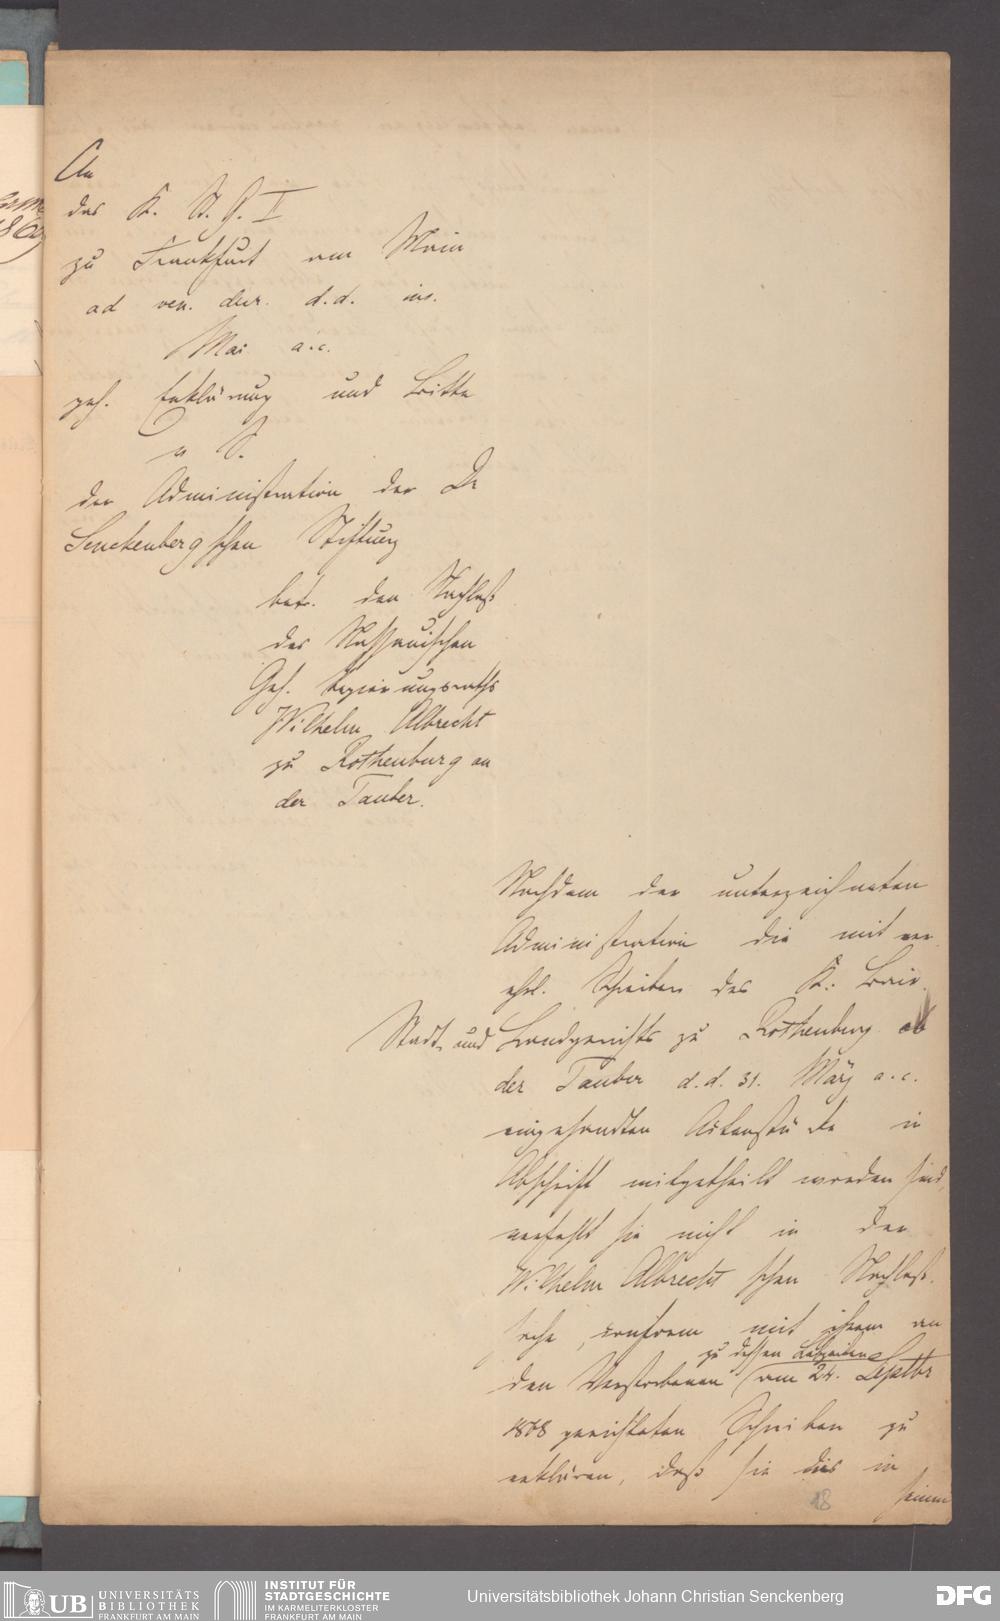 An
das K. St. G. I
zu Frankfurt am Main
ad ven. decr. d.d.
Mai a.c.
geh. Erklärung und Bitte
S.
der Administration der Dr
Senckenbergschen Stiftung
betr. den Nachlaß
des Nassauischen
Geh. Regierungsraths
Wilhelm Albrecht
zu Rothenburg an
der Tauber.
Nachdem der unterzeichneten
Administration die mit ver
ehrl. Schreiben des K. Bair.
Stadt und Landgerichts zu Rothenburg ob
der Tauber d.d. 31. März a.c.
eingesandten Aktenstücke in
Abschrift mitgetheilt worden sind,
verfehlt sie nicht in der
Wilhelm Albrecht schen Nachlaß-
sache, conform mit ihrem an
zu dessen Lebzeiten
den Verstorbenen am 24. Septbr
1868 gerichteten Schreiben zu
erklären, daß sie die in
seinem
18
UB UNIVERSITÄTS
BIBLIOTHEK
FRANKFURT AM MAIN
INSTITUT FÜR
STADTGESCHICHTE
IM KARMELITERKLOSTER
FRANKFURT AM MAIN
Universitätsbibliothek Johann Christian Senckenberg
DFG